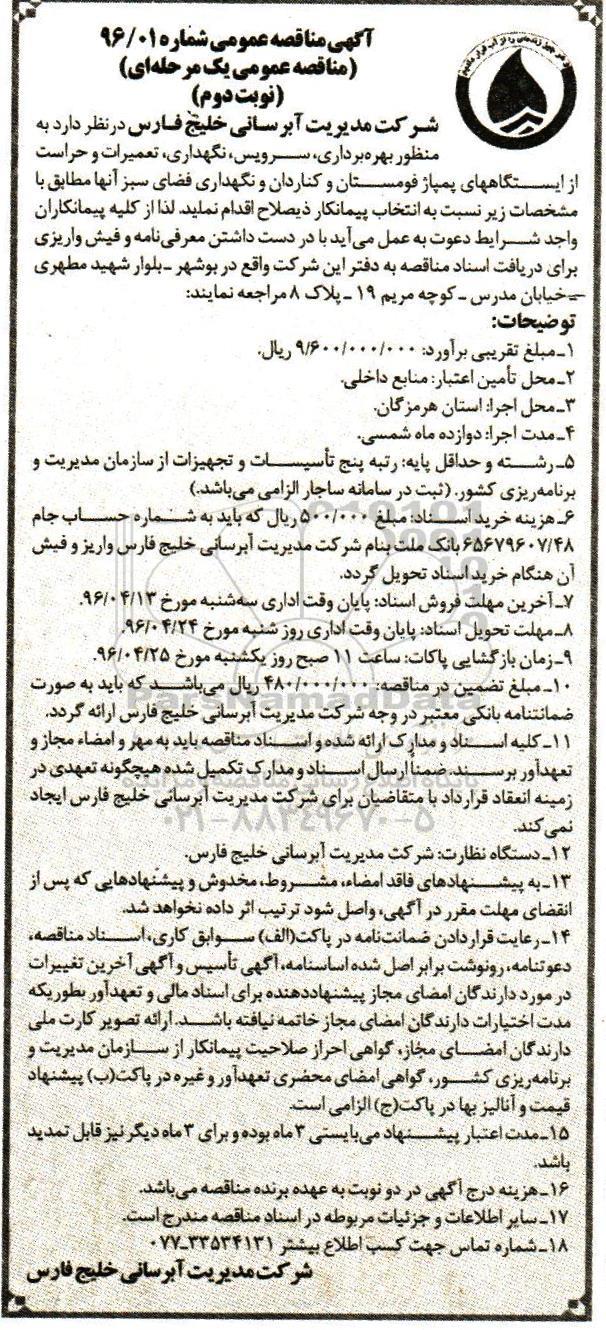 آگهی مناقصه عمومی شماره ۹۶/۰۱
(مناقصه عمومی یک مرحله‌ای)
(نوبت دوم)
شرکت مدیریت آبرسانی خلیج فارس درنظر دارد به
منظور بهره‌برداری، سرویس، نگهداری، تعمیرات و حراست
از ایستگاههای پمپاژ فومستان و کناردان و نگهداری فضای سبز آنها مطابق با
مشخصات زیر نسبت به انتخاب پیمانکار ذیصلاح اقدام نماید. لذا از کلیه پیمانکاران
واجد شرایط دعوت به عمل می‌آید با در دست داشتن معرفی‌نامه و فیش واریزی
برای دریافت اسناد مناقصه به دفتر این شرکت واقع در بوشهر ـ بلوار شهید مطهری
ـ خیابان مدرس ـ کوچه مریم ۱۹ ـ پلاک ۸ مراجعه نمایند:
توضیحات:
۱ـ مبلغ تقریبی برآورد: ۹/۶۰۰/۰۰۰/۰۰۰ ریال.
۲ـ محل تأمین اعتبار: منابع داخلی.
۳ـ محل اجرا: استان هرمزگان.
۴ـ مدت اجرا: دوازده ماه شمسی.
۵ـ رشته و حداقل پایه: رتبه پنج تأسیسات و تجهیزات از سازمان مدیریت و
برنامه‌ریزی کشور. (ثبت در سامانه ساجار الزامی می‌باشد.)
۶ـ هزینه خرید اسناد: مبلغ ۵۰۰/۰۰۰ ریال که باید به شماره حساب جام
۶۵۶۷۹۶۰۷/۴۸ بانک ملت بنام شرکت مدیریت آبرسانی خلیج فارس واریز و فیش
آن هنگام خرید اسناد تحویل گردد.
۷ـ آخرین مهلت فروش اسناد: پایان وقت اداری سه‌شنبه مورخ ۹۶/۰۴/۱۳.
۸ـ مهلت تحویل اسناد: پایان وقت اداری روز شنبه مورخ ۹۶/۰۴/۲۴.
۹ـ زمان بازگشایی پاکات: ساعت ۱۱ صبح روز یکشنبه مورخ ۹۶/۰۴/۲۵.
۱۰ـ مبلغ تضمین در مناقصه: ۴۸۰/۰۰۰/۰۰۰ ریال می‌باشد که باید به صورت
ضمانتنامه بانکی معتبر در وجه شرکت مدیریت آبرسانی خلیج فارس ارائه گردد.
۱۱ـ کلیه اسناد و مدارک ارائه شده و اسناد مناقصه باید به مهر و امضاء مجاز و
تعهدآور برسند. ضمناً ارسال اسناد و مدارک تکمیل شده هیچگونه تعهدی در
زمینه انعقاد قرارداد با متقاضیان برای شرکت مدیریت آبرسانی خلیج فارس ایجاد
نمی‌کند.
۱۲ـ دستگاه نظارت: شرکت مدیریت آبرسانی خلیج فارس.
۱۳ـ به پیشنهادهای فاقد امضاء، مشروط، مخدوش و پیشنهادهایی که پس از
انقضای مهلت مقرر در آگهی، واصل شود ترتیب اثر داده نخواهد شد.
۱۴ـ رعایت قراردادن ضمانت‌نامه در پاکت(الف) سوابق کاری، اسناد مناقصه،
دعوتنامه، رونوشت برابر اصل شده اساسنامه، آگهی تأسیس و آگهی آخرین تغییرات
در مورد دارندگان امضای مجاز پیشنهاددهنده برای اسناد مالی و تعهدآور بطوریکه
مدت اختیارات دارندگان امضای مجاز خاتمه نیافته باشد. ارائه تصویر کارت ملی
دارندگان امضای مجاز، گواهی احراز صلاحیت پیمانکار از سازمان مدیریت و
برنامه‌ریزی کشور، گواهی امضای محضری تعهدآور و غیره در پاکت(ب) پیشنهاد
قیمت و آنالیز بها در پاکت(ج) الزامی است.
۱۵ـ مدت اعتبار پیشنهاد می‌بایستی ۳ ماه بوده و برای ۳ ماه دیگر نیز قابل تمدید
باشد.
۱۶ـ هزینه درج آگهی در دو نوبت به عهده برنده مناقصه می‌باشد.
۱۷ـ سایر اطلاعات و جزئیات مربوطه در اسناد مناقصه مندرج است.
۱۸ـ شماره تماس جهت کسب اطلاع بیشتر ۳۳۵۳۴۱۳۱-۰۷۷
شرکت مدیریت آبرسانی خلیج فارس
ParsNamadData
۰۲۱-۸۸۳۴۹۶۷۰-۵